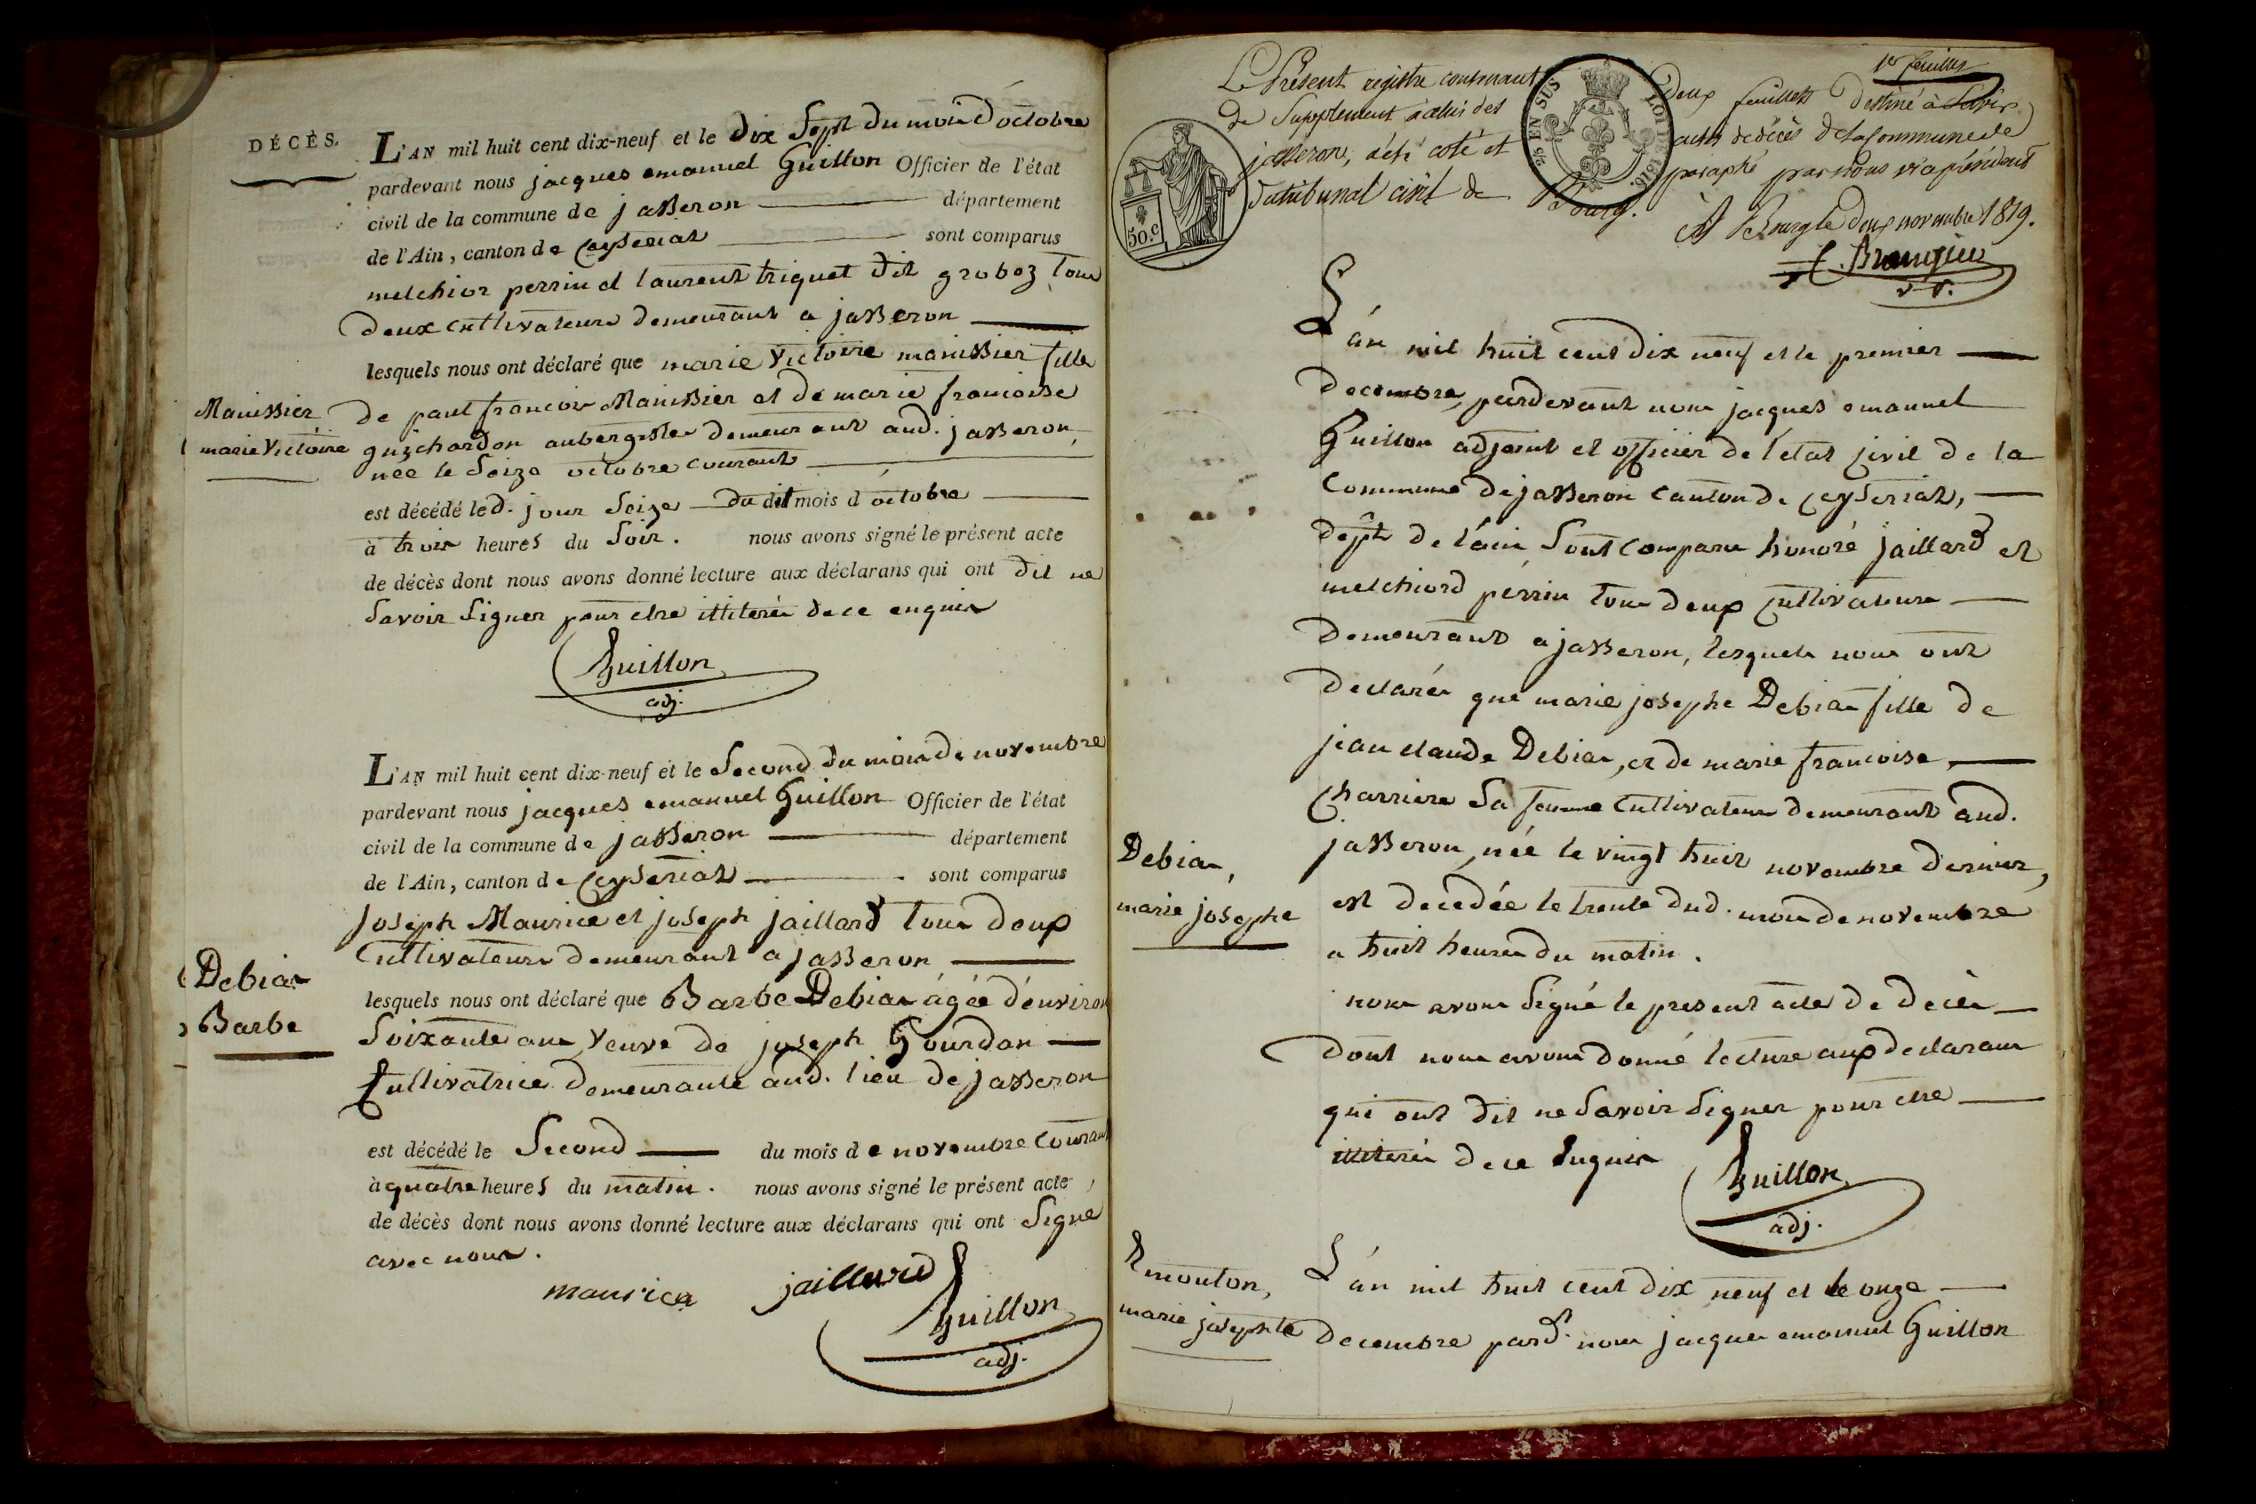 DÉCÈS.
L'AN mil huit cent dix-neuf et le dix Sept du mois d'octobre
pardevant nous jacques emanuel Guillon Officier de l'état
civil de la commune de jasseron département
de l'Ain, canton de Ceyseriat sont comparus
melchior perrin et laurent triquet dit groboz tous
deux cultivateurs demeurant a jasseron
lesquels nous ont déclaré que marie Victoire manissier fille
Manissier
marie Victoire
de paul françois Manissier et de marie françoise
guichardon aubergiste demeurant aud. jasseron,
née le Seize octobre courant
est décédé led. jour Seize du dit mois d'octobre
à trois heures du Soir. nous avons signé le présent acte
de décès dont nous avons donné lecture aux déclarans qui ont dit ne
Savoir Signer pour etre illiterés de ce enquis
Guillon
adj.
L'AN mil huit cent dix-neuf et le Second du mois de novembre
pardevant nous jacques emanuel Guillon Officier de l'état
civil de la commune de jasseron département
de l'Ain, canton de Ceyseriat sont comparus
joseph Maurice et joseph jaillard tous deux
Cultivateurs demeurant a jasseron
Debias
Barbe
lesquels nous ont déclaré que Barbe Debias agée d'environ
Soixante ans, Veuve de joseph Gourdan
Cultivatrice demeurante aud. lieu de jasseron
est décédé le Second du mois de novembre courant
à quatre heures du matin. nous avons signé le présent acte
de décès dont nous avons donné lecture aux déclarans qui ont Signé
avec nous.
maurice jaillard
Guillon
adj.
1er feuillet
Le Présent registre contenant deux feuillets destiné à Servir
de Supplement à celui des actes de décès de la Commune de
jasseron, a été coté et paraphé par Nous vice président
du tribunal civil de Bourg.
À Bourg le deux novembre 1819.
50.C
25 EN SUS
LOI DE 1816.
v. p.
L'an mil huit cent dix neuf et le premier
decembre, pardevant nous jacques emanuel
Guillon adjoint et officier de l'état Civil de la
Commune de jasseron canton de Ceyseriat,
dépt de l'ain Sont Comparus honoré jaillard et
melchiord pérrin tous deux Cultivateurs
demeurant a jasseron, lesquels nous ont
declarés que marie josephe Debias fille de
jean claude Debias, et de marie francoise
Charriere Sa femme Cultivateurs demeurant aud.
jasseron, née le vingt huit novembre dernier,
Debias,
marie josephe
est decedée le trente dud. mois de novembre
a huit heures du matin.
nous avons Signé le present acte de decès
dont nous avons donné lecture aux declarans
qui ont dit ne Savoir Signer pour etre
illiterés de ce Enquis
Guillon
adj.
Emonton,
marie josephte
L'an mil huit cent dix neuf et le onze
decembre pard. nous jacques emanuel Guillon